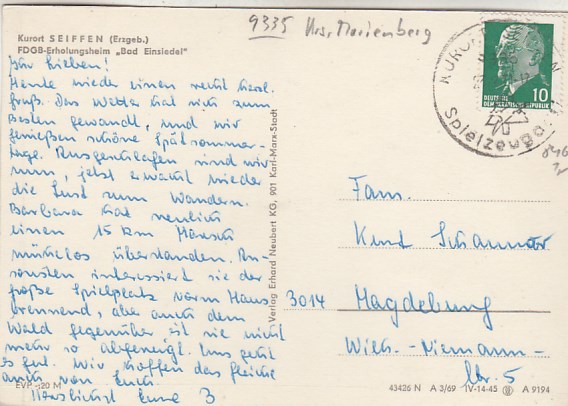 9335 Krs. Marienberg
Kurort SEIFFEN (Erzgeb.)
FDGB-Erholungsheim „Bad Einsiedel"
Ihr Lieben!
Heute wieder einen recht herzl.
Gruß. Das Wetter hat sich zum
Besten gewandt, und wir
genießen schöne Spätsommer-
tage. Ausgeschlafen sind wir
nun, jetzt erwacht wieder
die Lust zum Wandern.
Barbara hat neulich
einen 15 km Marsch
mühelos überstanden. An-
sonsten interessiert sie der
große Spielplatz vorm Haus
brennend, aber auch dem
Wald gegenüber ist sie nicht
mehr so abgeneigt. Uns geht
es gut. Wir hoffen das gleiche
auch von Euch
Herzlichst Eure B
EVP -,20 M
Verlag Erhard Neubert KG, 901 Karl-Marx-Stadt
DEUTSCHE
DEMOKRATISCHE REPUBLIK
10
KURORT
Spielzeug
Fam.
Kurt
3014 Magdeburg
Wilh.-Niemann-
Str. 5
43426 N A 3/69 IV-14-45 A 9194